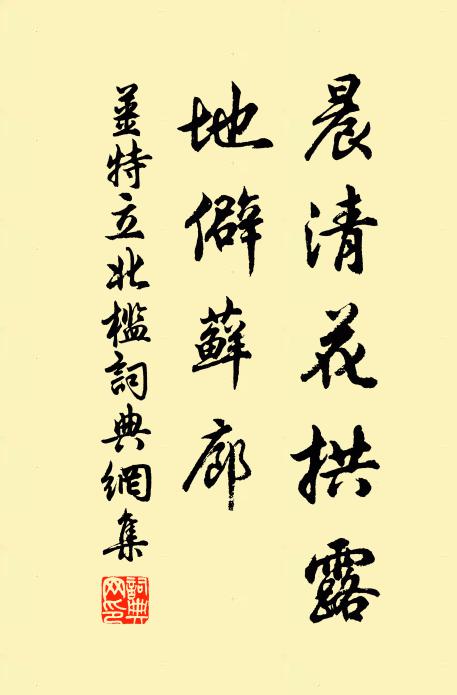 晨清花拱露
地僻蘚廊
薑特立北檻詞典網集
詞典
网印